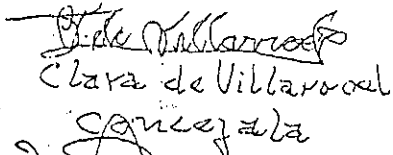 de Villarroel
Clara de Villarroel
Concejala